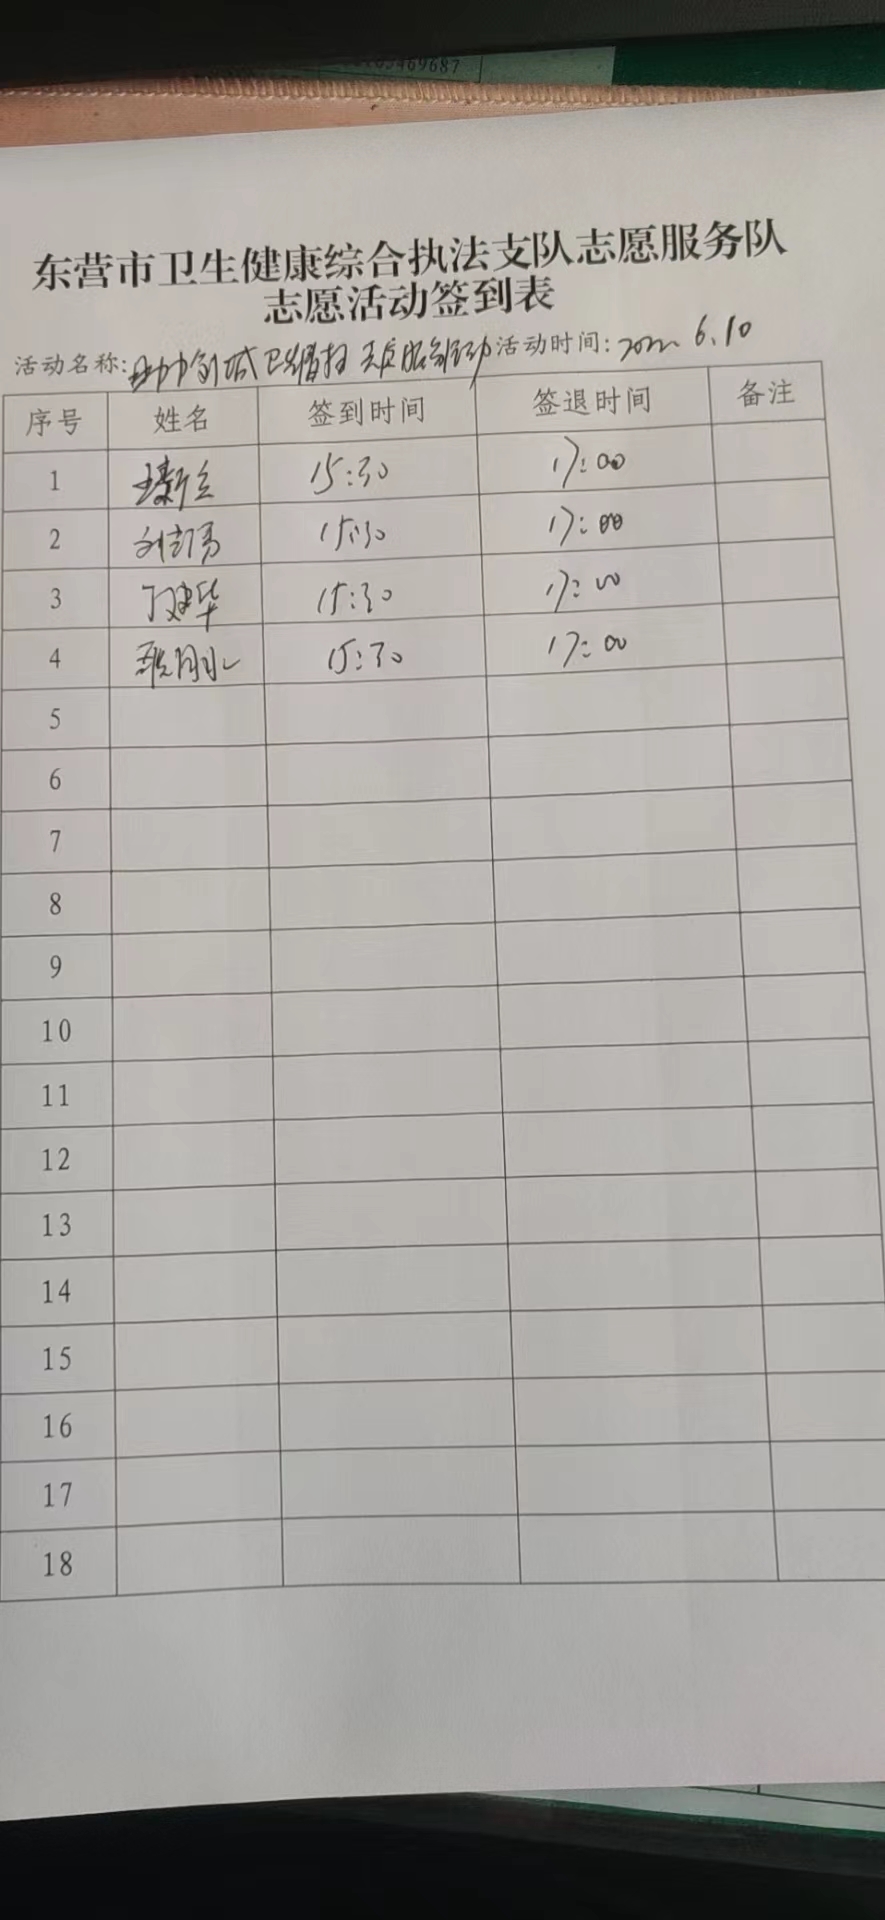 69687
东营市卫生健康综合执法支队志愿服务队
志愿活动签到表
活动名称:助力创城卫生清扫志愿服务活动 活动时间:2022 6.10
序号 姓名 签到时间 签退时间 备注
1 15:30 17:00
2 15:30 17:00
3 15:30 17:00
4 15:30 17:00
5
6
7
8
9
10
11
12
13
14
15
16
17
18